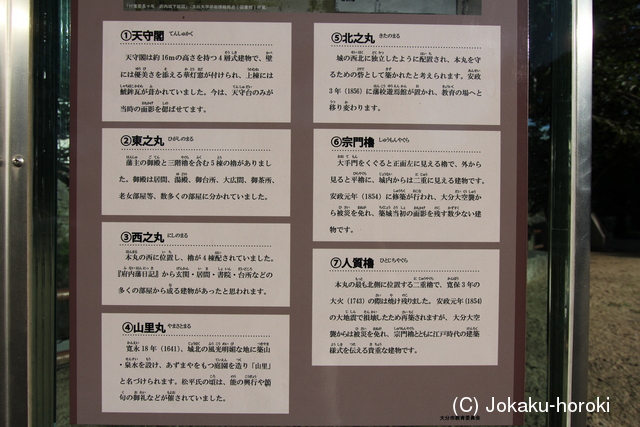 ①天守閣 てんしゅかく
天守閣は約16mの高さを持つ4層式建物で、壁
には優美さを添える華灯窓が付けられ、上棟には
鯱鉾瓦が葺かれていました。今は、天守台のみが
当時の面影を偲ばせてます。
②東之丸 ひがしのまる
藩主の御殿と三階櫓を含む5棟の櫓がありまし
た。御殿は居間、湯殿、御台所、大広間、御茶所、
老女部屋等、数多くの部屋に分かれていました。
③西之丸 にしのまる
本丸の西に位置し、櫓が4棟配されていました。
『府内藩日記』から玄関・居間・書院・台所などの
多くの部屋から成る建物があったと思われます。
④山里丸 やまさとまる
寛永18年(1641)、城北の風光明媚な地に築山
・泉水を設け、あずまやをもつ庭園を造り「山里」
と名づけられます。松平氏の頃は、能の興行や節
句の御礼などが催されていました。
⑤北之丸 きたのまる
城の西北に独立したように配置され、本丸を守
るための砦として築かれたと考えられます。安政
3年(1856)に藩校遊焉館が置かれ、教育の場へと
移り変わります。
⑥宗門櫓 しゅうもんやぐら
大手門をくぐると正面左に見える櫓で、外から
見ると平櫓に、城内からは二重に見える建物です。
安政元年(1854)に修築が行われ、大分大空襲か
ら被災を免れ、築城当初の面影を残す数少ない建
物です。
⑦人質櫓 ひとじちやぐら
本丸の最も北側に位置する二重櫓で、寛保3年の
大火(1743)の際は焼け残りました。安政元年(1854)
の大地震で損壊したため再築されますが、大分大空
襲からは被災を免れ、宗門櫓とともに江戸時代の建築
様式を伝える貴重な建物です。
大分市教育委員会
(C) Jokaku-horoki